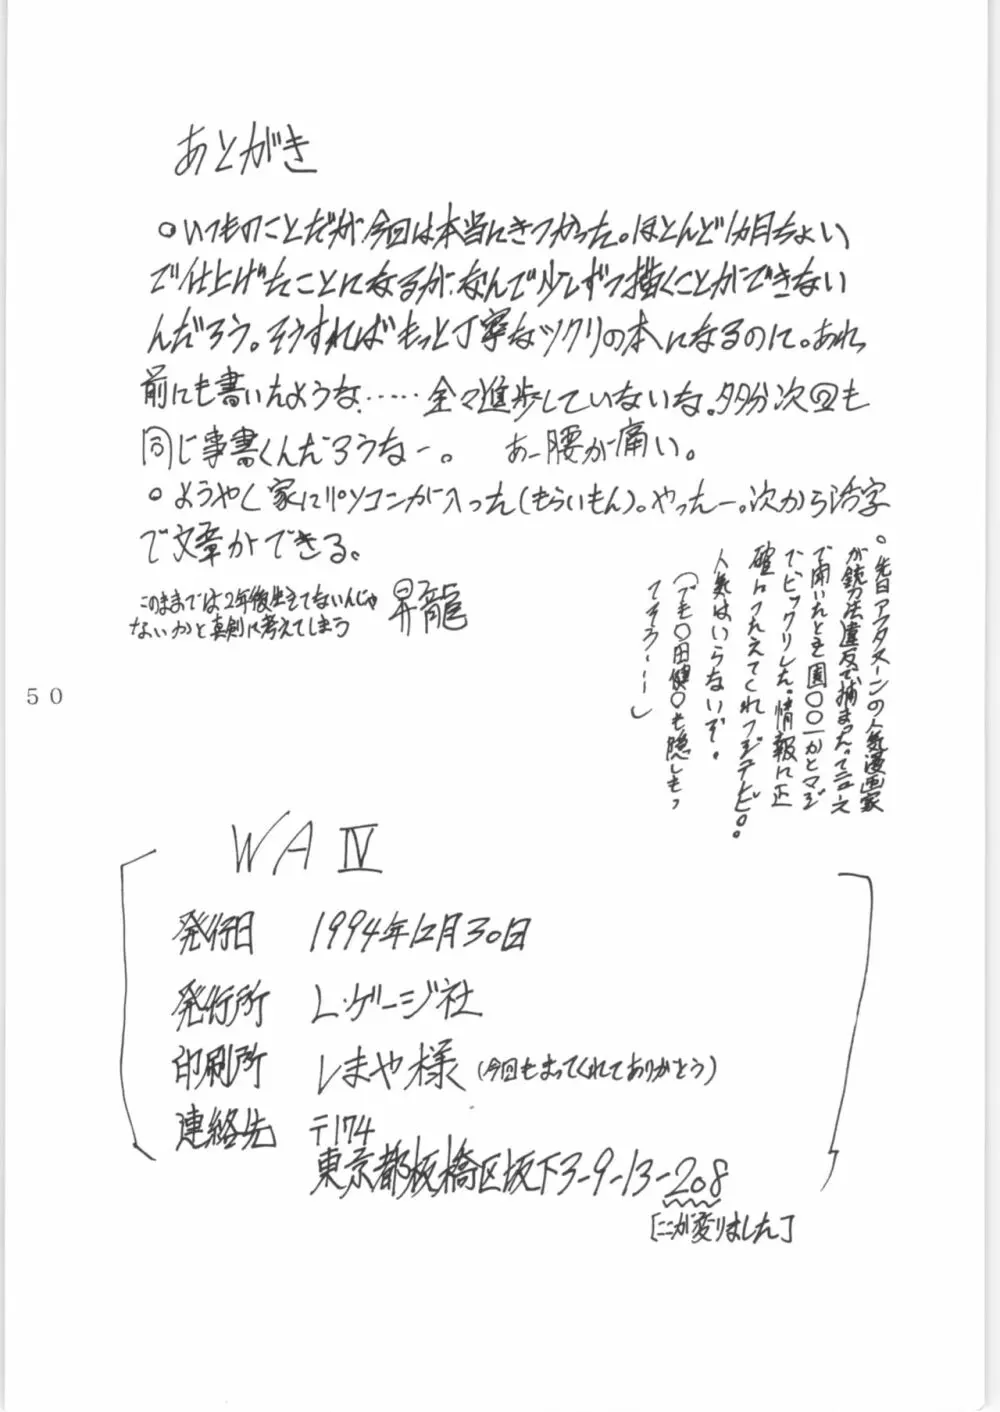 あとがき
○いつものことだが今回は本当にきつかった。ほとんど1カ月ちょい
で仕上げたことになるが、なんで少しずつ描くことができない
んだろう。そうすればもっと丁寧なツクリの本になるのに。あれ
前にも書いたような……全々進歩していないな。多分次回も
同じ事書くんだろうなー。 あー腰が痛い。
○ようやく家にパソコンが入った(もらいもん)。やったー。次から活字
で文章ができる。
このままでは2年後生きてないんじゃ
ないかと真剣に考えてしまう
昇龍
○先日アフタヌーンの人気漫画家
が銃刀法違反で捕まったってニュース
で聞いたとき園○○一かとマジ
でビックリした。情報は正
確につたえてくれフジテレビ。
人気はいらないぞ。
(でも○田健○も隠しもっ
てそう——)
50
WA Ⅳ
発行日 1994年12月30日
発行所 L・ゲージ社
印刷所 しまや様(今回もまってくれてありがとう)
連絡先 〒174
東京都板橋区坂下3-9-13-208
[ここが変りました]